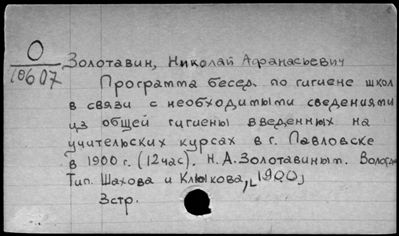 О
10607
Золотавин, Николай Афанасьевич
Программа бесед по гигиене школ
в связи с необходимыми сведениями
из общей гигиены введенных на
учительских курсах в г. Павловске
в 1900 г. (12 час). Н.А. Золотавиным. Вологда
Тип. Шахова и Клыкова, [1900]
3 стр.